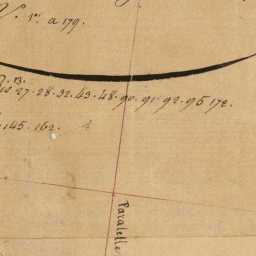 V. 1r. a 179.
27. 28. 32. 43. 48. 90. 91. 92. 95 172.
145. 162.
Paralelle